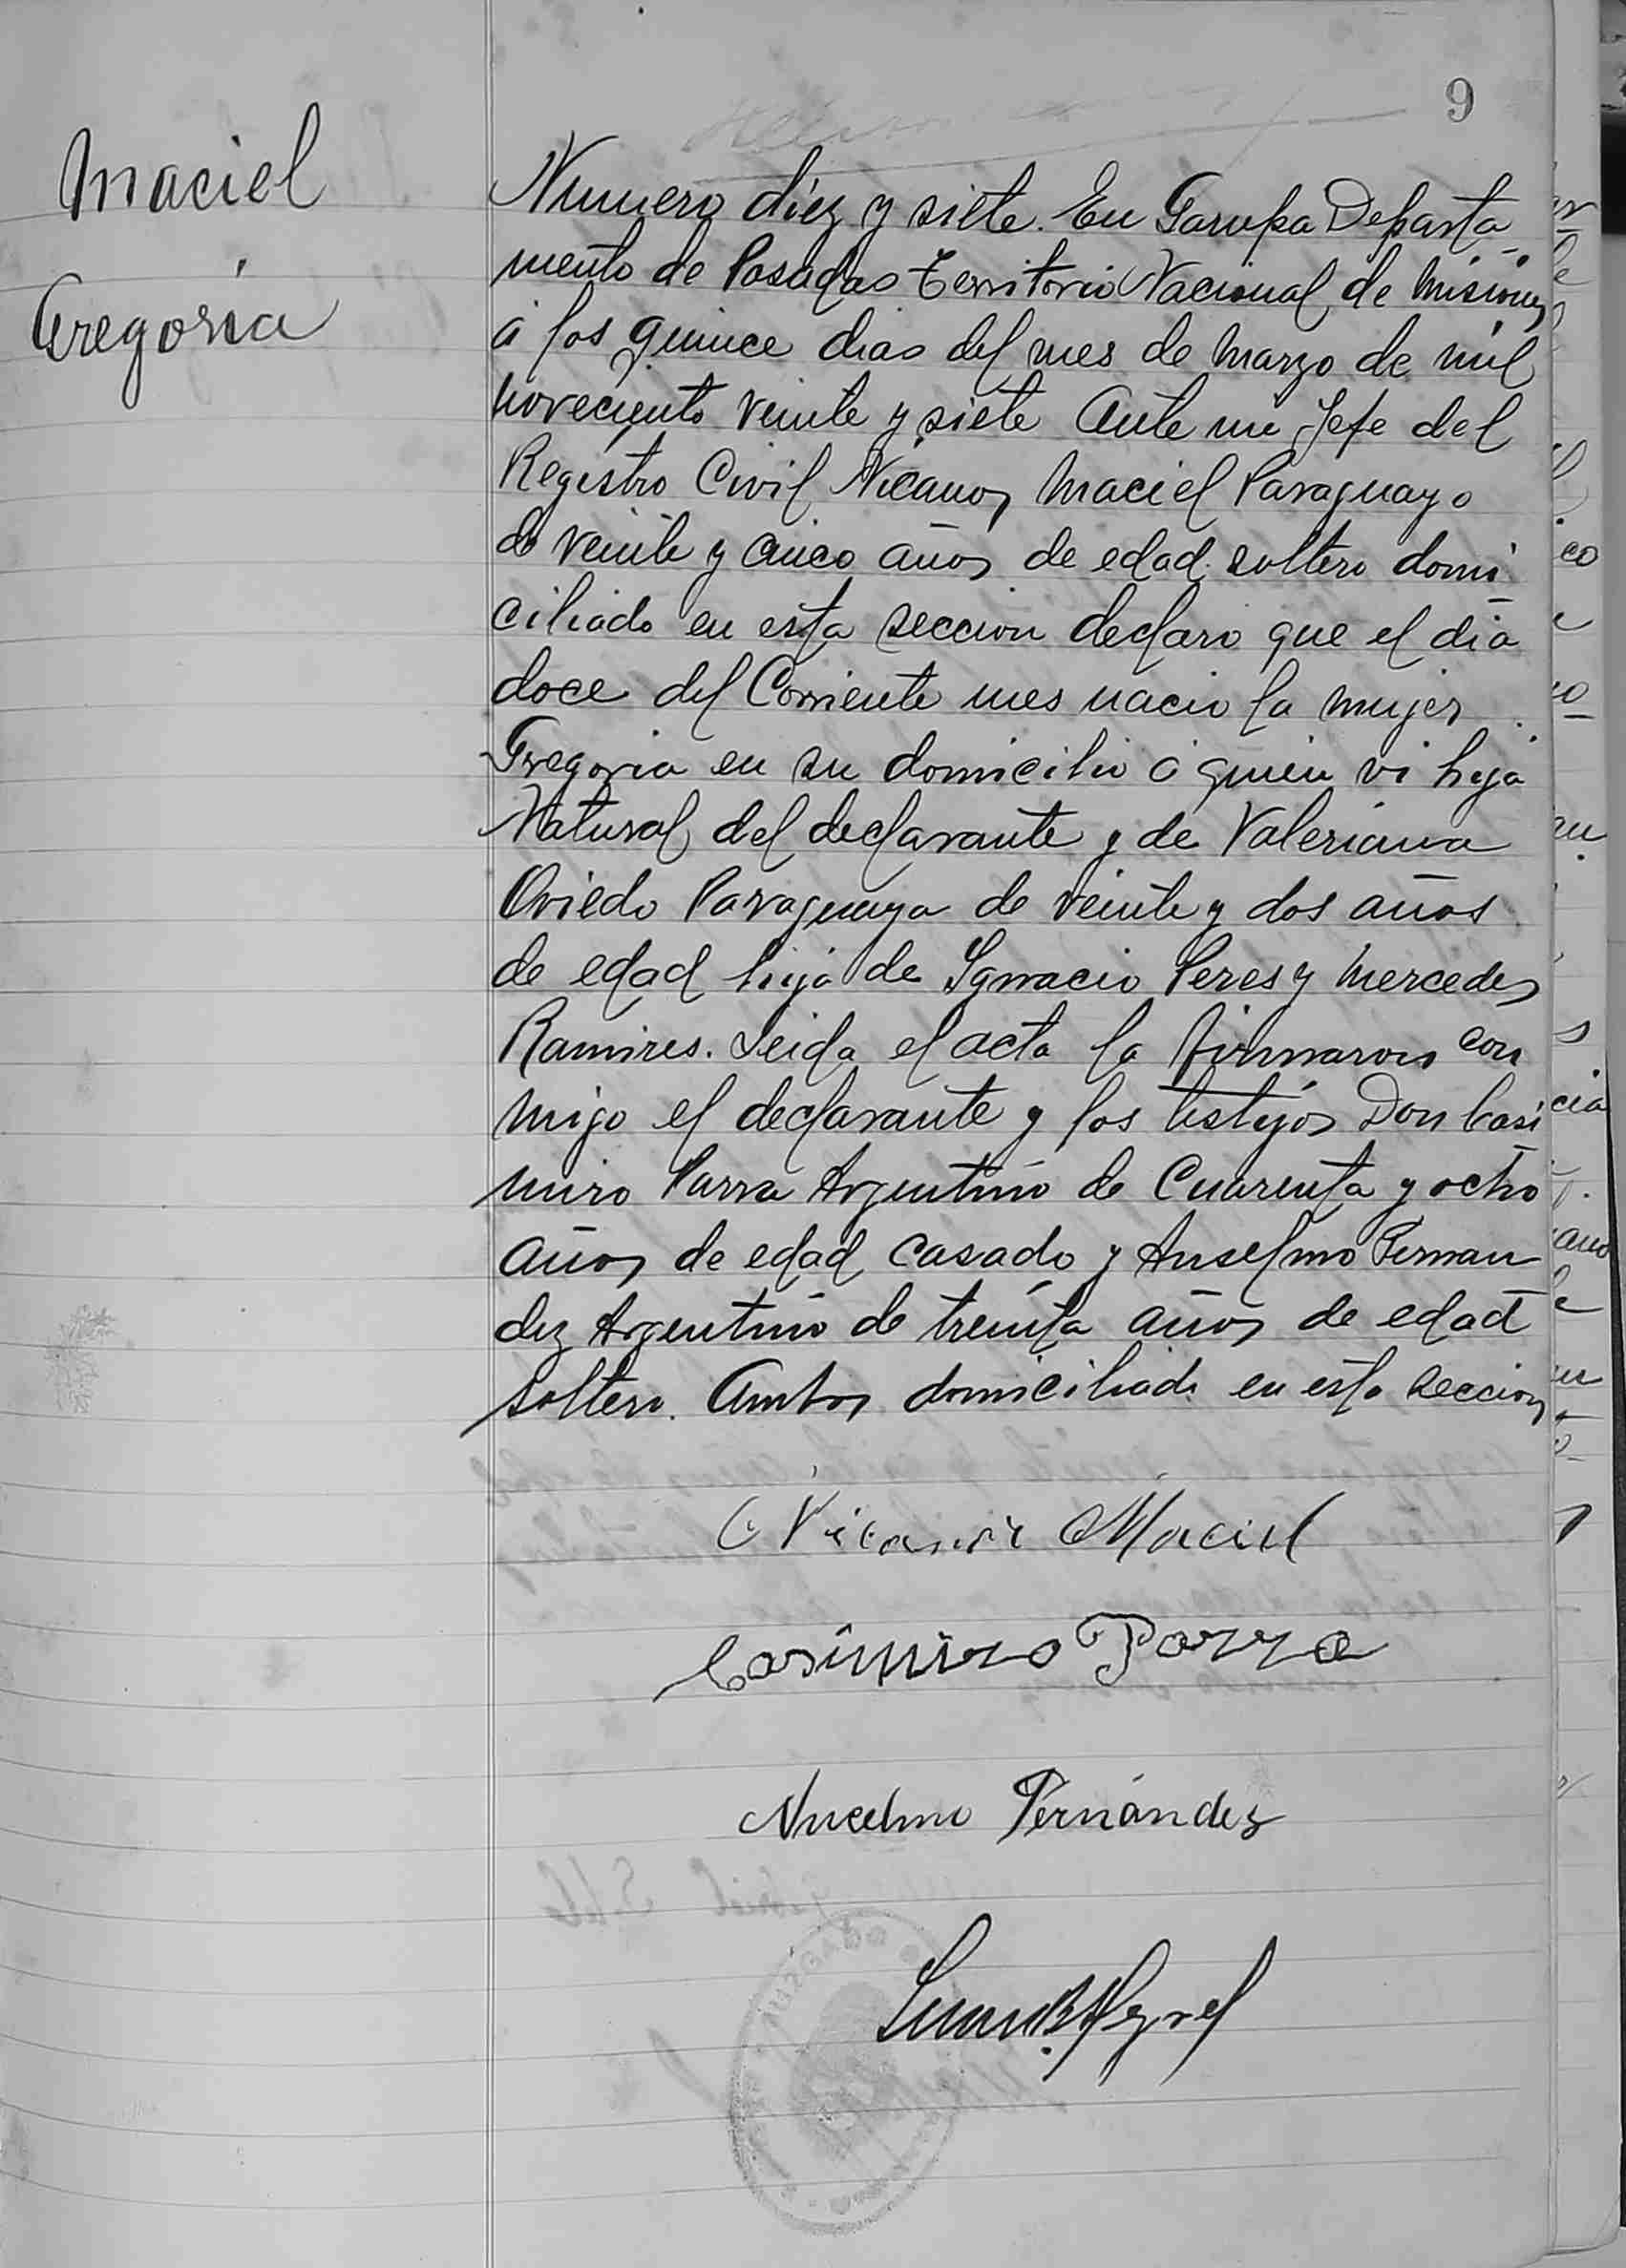 9
Maciel
Gregoria
Numero diez y siete. En Garupa Departa
mento de Posadas Territorio Nacional de Misiones
á los quince dias del mes de Marzo de mil
noveciento veinte y siete Ante mi Jefe del
Registro Civil Nicanor Maciel Paraguayo
de veinte y cinco años de edad soltero domi
ciliado en esta seccion declaro que el dia
doce del Corriente mes nacio la mujer
Gregoria en su domicilio á quien vi hija
Natural del declarante y de Valeriana
Oviedo Paraguaya de veinte y dos años
de edad hija de Ignacio Peres y Mercedes
Ramires. Leida el acta la firmaron con
migo el declarante y los testigos Don Casi
miro Parra Argentino de Cuarenta y ocho
años de edad casado y Anselmo Fernan
dez Argentino de treinta años de edad
soltero. Ambos domiciliado en esta seccion
Nicanor Maciel
Casimiro Parra
Ancelmo Fernández